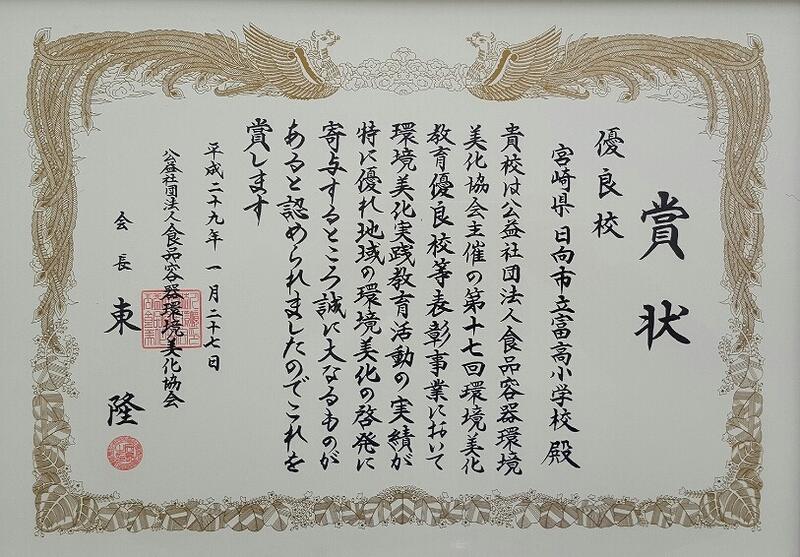 賞状
優良校
宮崎県日向市立富高小学校殿
貴校は公益社団法人食品容器環境
美化協会主催の第十七回環境美化
教育優良校等表彰事業において
環境美化実践教育活動の実績が
特に優れ地域の環境美化の啓発に
寄与するところ誠に大なるものが
あると認められましたのでこれを
賞します
平成二十九年一月二十七日
公益社団法人食品容器環境美化協会
会長 東隆